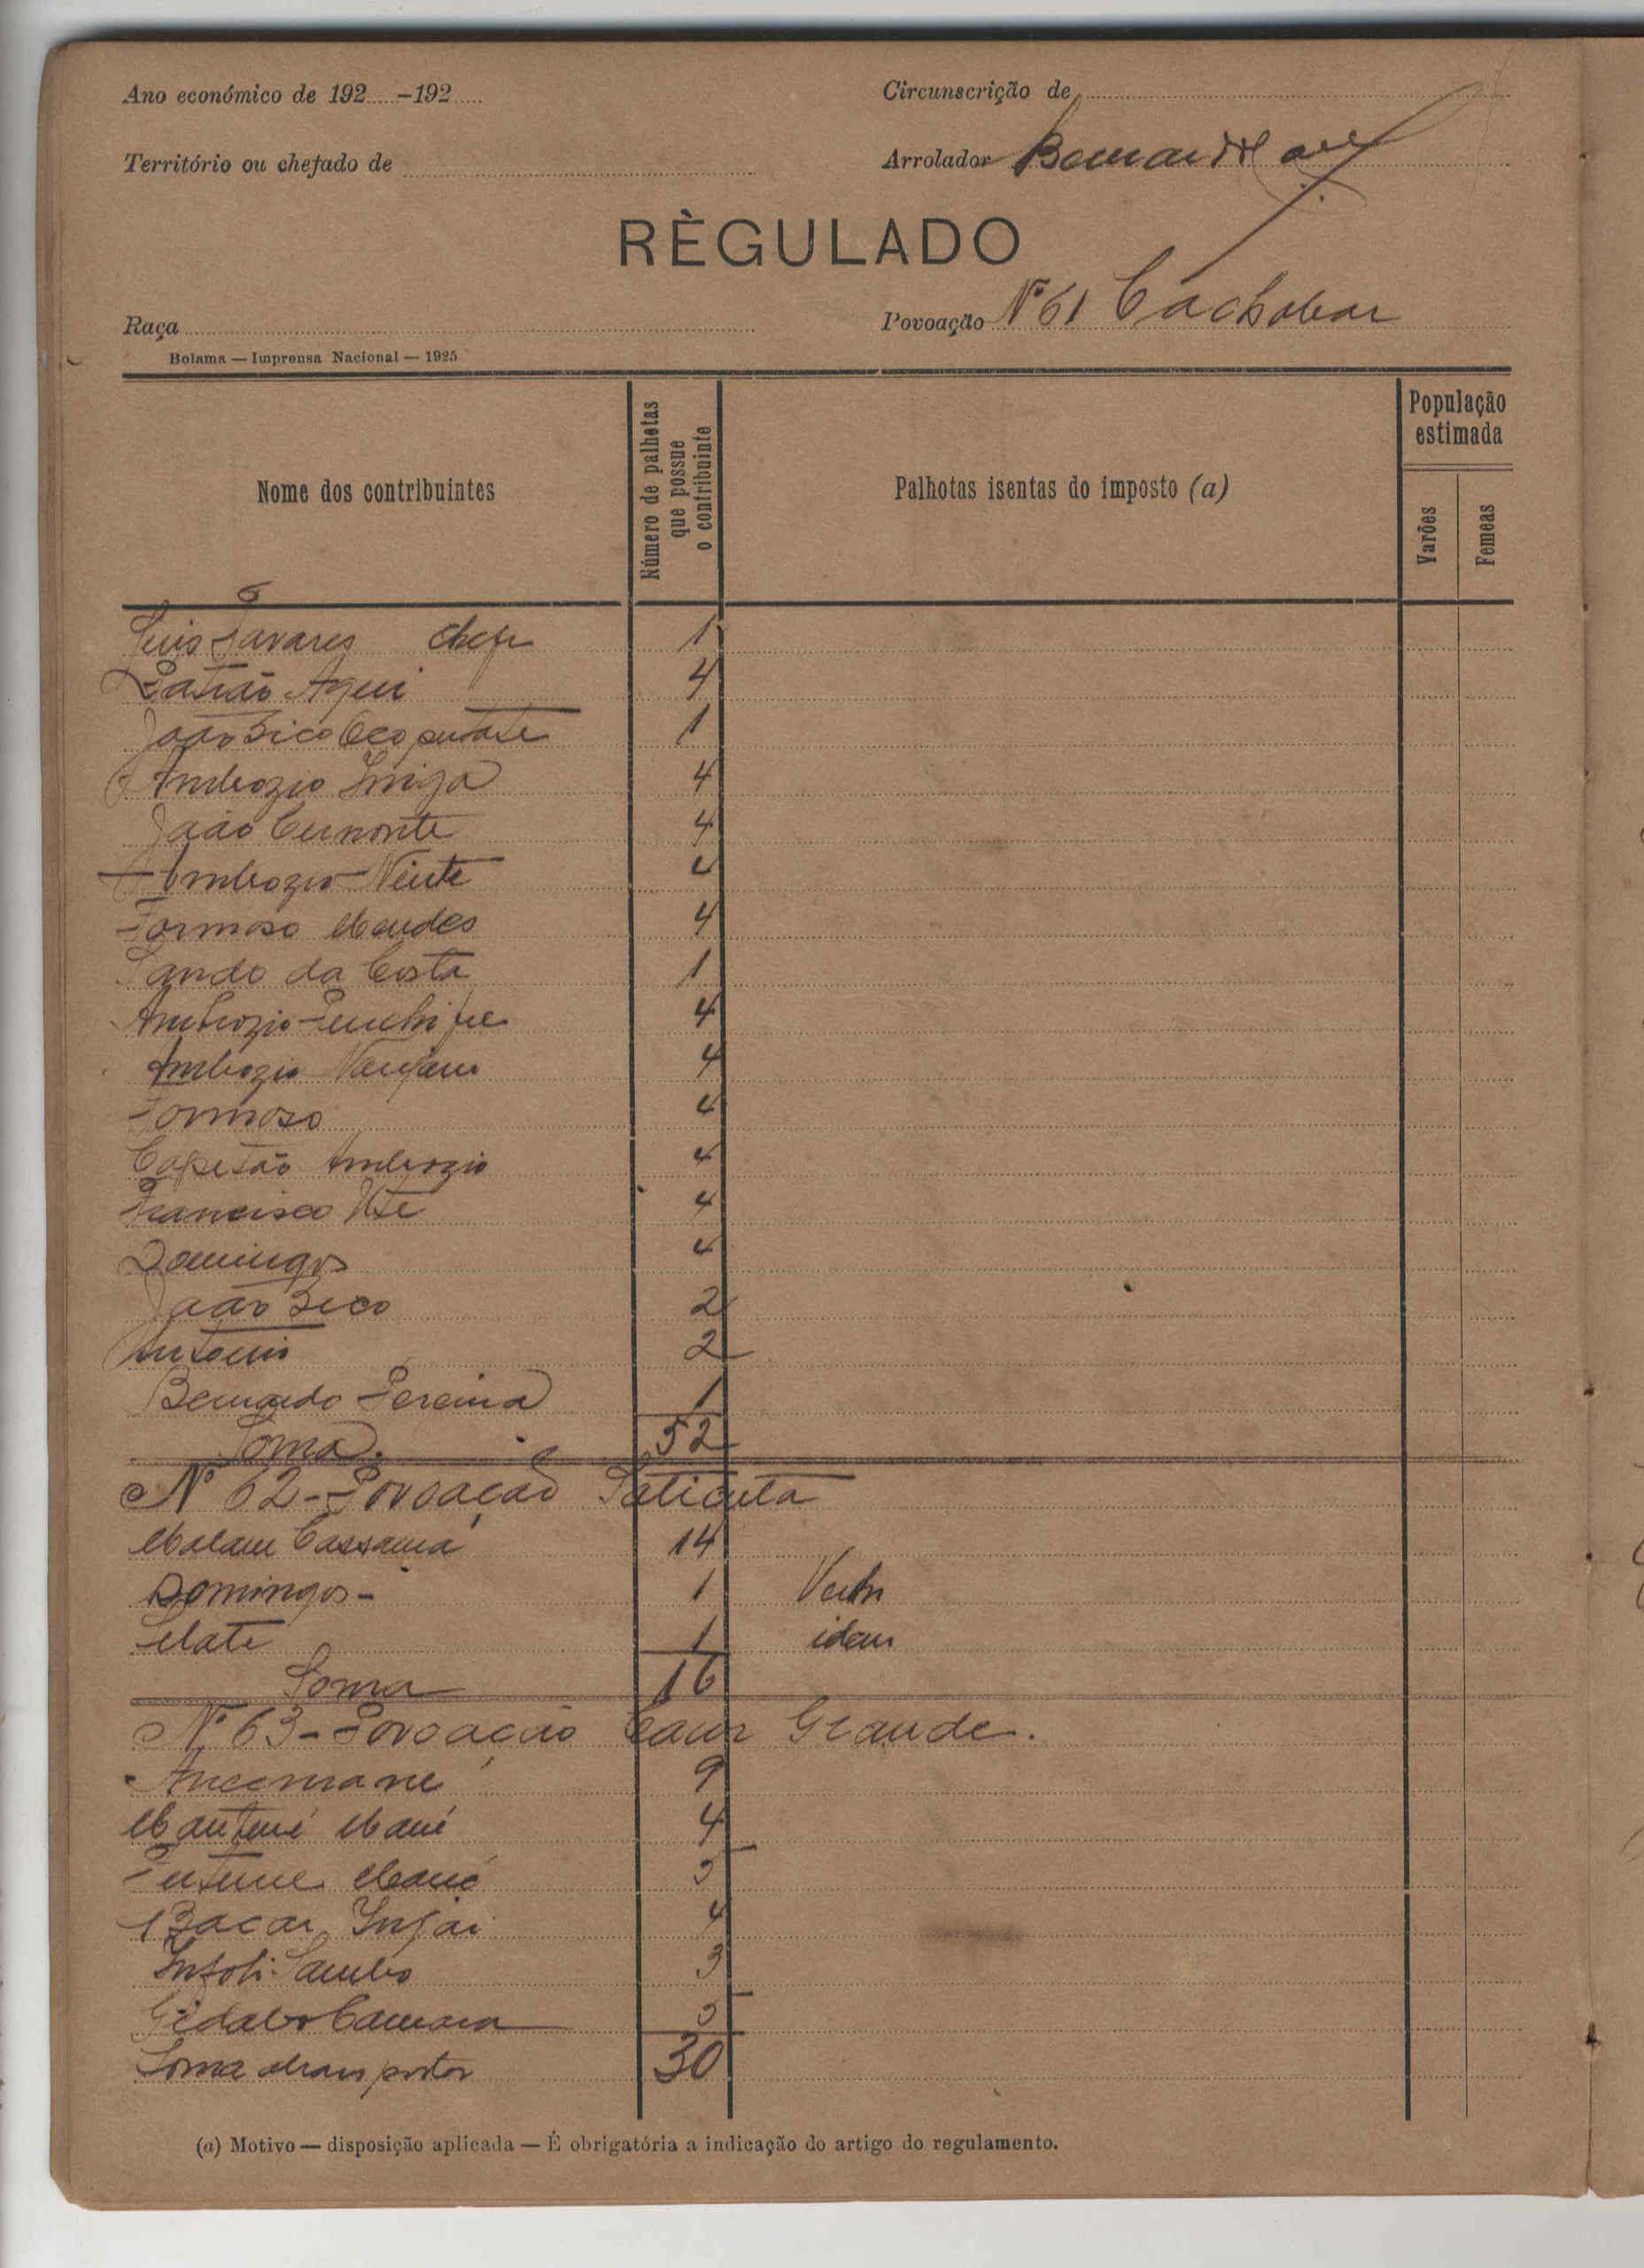 Ano económico de 192.....-192.....
Circunscrição de
Território ou chefado de
Arrolador
RÈGULADO
Raça
Povoação Nº 61 Cachobar
Bolama — Imprensa Nacional — 1925
Nome dos contribuintes
Número de palhotas que possue o contribuinte
Palhotas isentas do imposto (a)
População estimada
Varões
Femeas
Luis Tavares Chefe 1
Patrão Aqui 4
João Bico 1
Ambrozio Iniga 4
João 4
Ambrozio Neute 4
Formoso Mendes 4
Pando da Costa 1
Ambrozio 4
Ambrozio 4
Formoso 4
Capitão Ambrozio 4
Francisco 4
Domingos 4
João Bico 2
Antonio 2
Bernardo Pereira 1
Soma. 52
Nº 62 - Povoação
Malam Cassamá 14
Domingos - 1
1 idem
Soma 16
Nº 63 - Povoação Caur Grande.
9
Mané 4
Mané 5
Bacar Injai 4
Sambo 3
Camara 5
Soma 30
(a) Motivo — disposição aplicada — É obrigatória a indicação do artigo do regulamento.